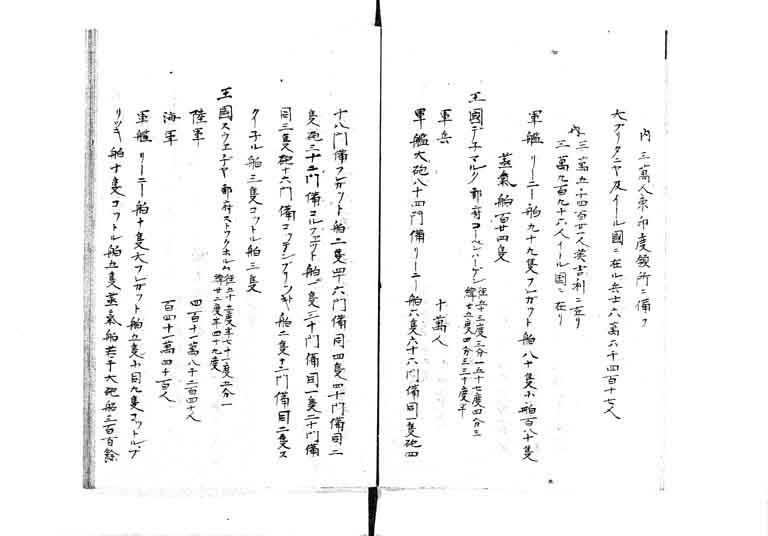 内三萬人東印度領所ニ備フ
大ブリタニヤ及イールン國ニ在ル兵士六萬六千四百十七人
内三萬五千四百廿一人英吉利ニ在リ
三萬九百九十六人イールン国ニ在リ
軍艦リーニー船九十九隻フレガット船八十隻小船百八十隻
蒸氣船百廿四隻
王國デーネマルク都府コーペンハーゲン 経五十三度三分一五十七度四分三
緯廿五度四分三三十度半
軍兵 十萬人
軍艦大砲八十四門備リーニー船六隻六十六門備同一隻砲四
十八門備フレガット船二隻四十六門備同四隻四十門備同二
隻砲三十二門備コルフェット船一隻三十門備同一隻二十門備
同三隻砲十六門備コッテンブリッキ船二隻十二門備同二隻ス
クーネル船三隻コットル船三隻
王國スウェーデヤ都府ストックホルム 経五十五度半七十一度五分一
緯廿二度半四十九度
陸軍 四百十一萬八千二百四十人
海軍 百四十一萬四千百人
軍艦リーニー船十隻大フレガット船五隻小同九隻コットルブ
リッキ船十隻コットル船五隻蒸氣船若干大砲船三百百餘